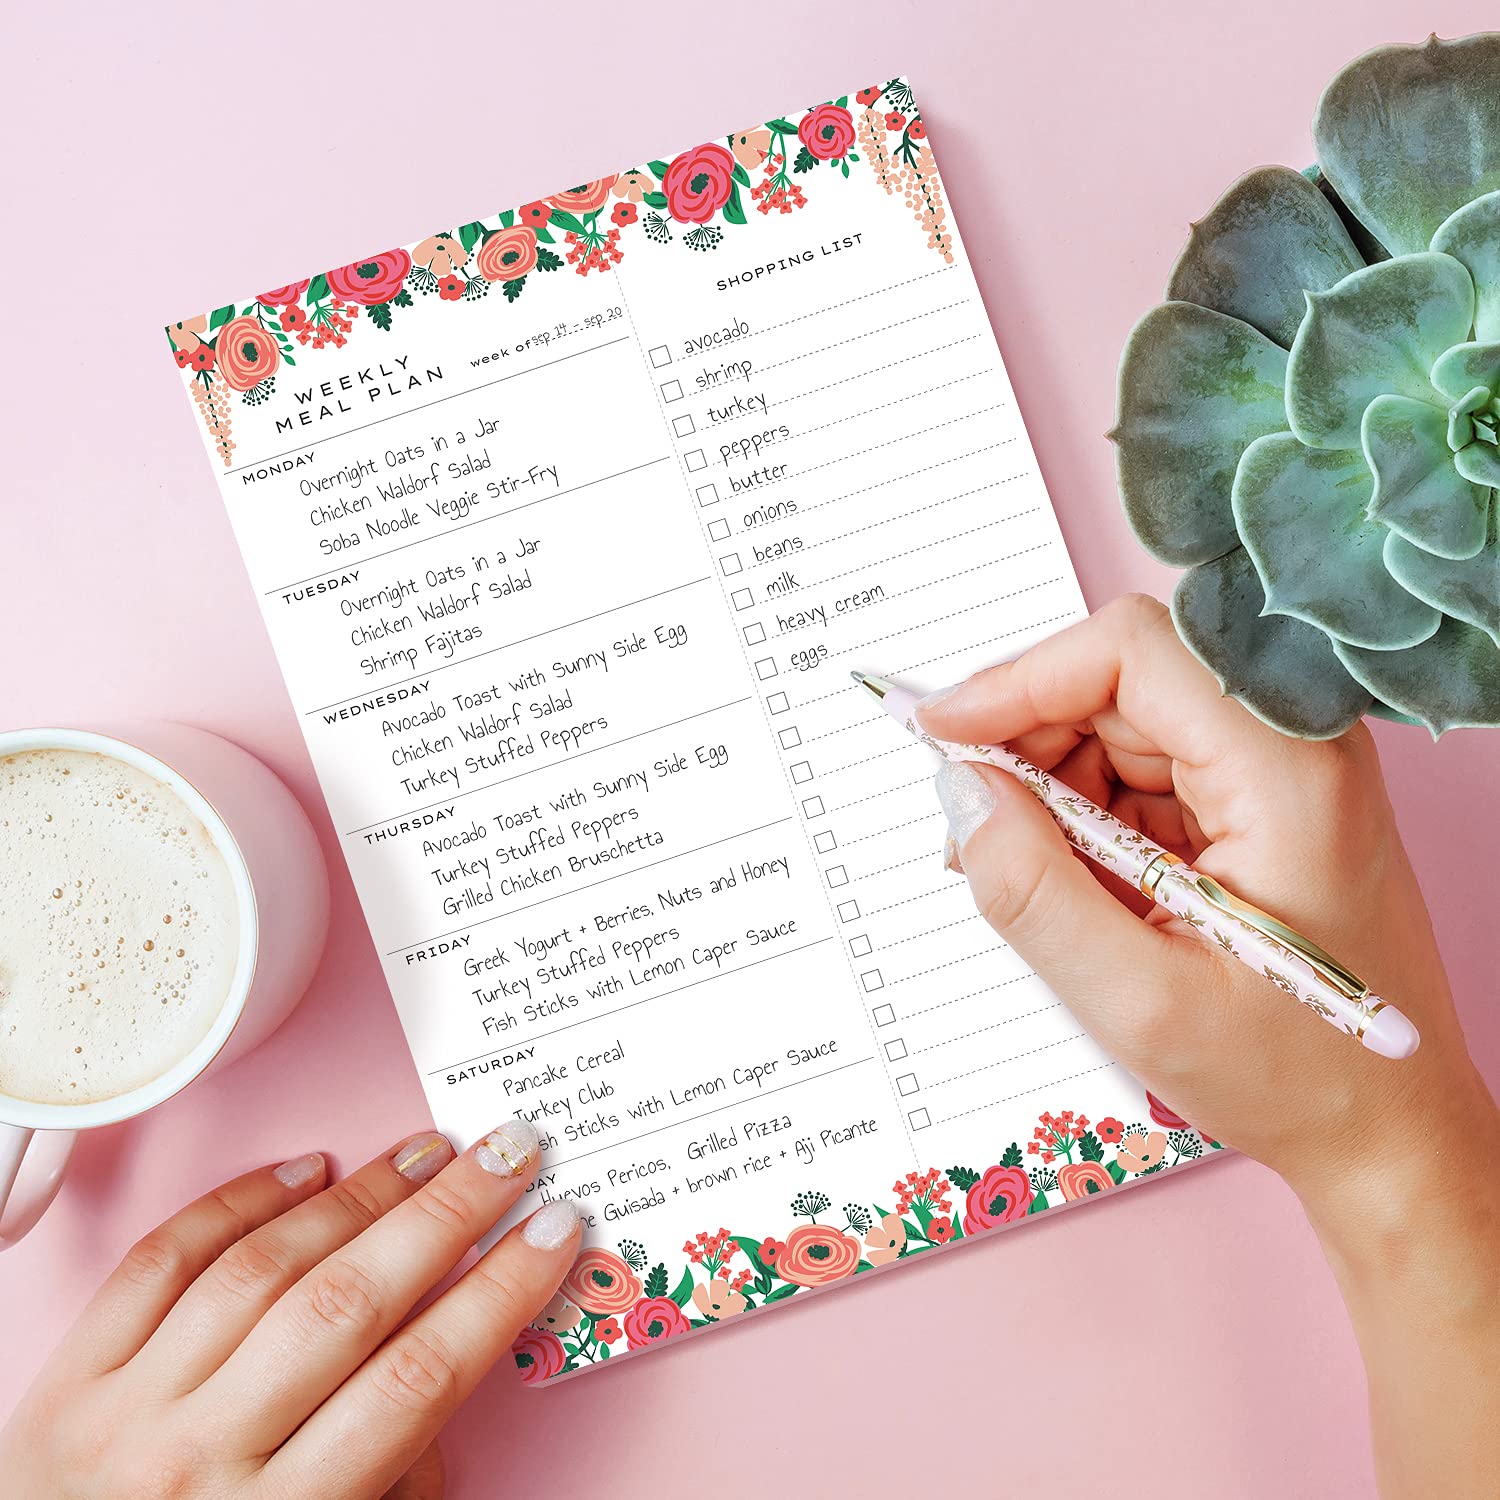 WEEKLY
MEAL PLAN
week of sep 14 - sep 20
MONDAY
Overnight Oats in a Jar
Chicken Waldorf Salad
Soba Noodle Veggie Stir-Fry
TUESDAY
Overnight Oats in a Jar
Chicken Waldorf Salad
Shrimp Fajitas
WEDNESDAY
Avocado Toast with Sunny Side Egg
Chicken Waldorf Salad
Turkey Stuffed Peppers
THURSDAY
Avocado Toast with Sunny Side Egg
Turkey Stuffed Peppers
Grilled Chicken Bruschetta
FRIDAY
Greek Yogurt + Berries, Nuts and Honey
Turkey Stuffed Peppers
Fish Sticks with Lemon Caper Sauce
SATURDAY
Pancake Cereal
Turkey Club
Sticks with Lemon Caper Sauce
Huevos Pericos, Grilled Pizza
Guisada + brown rice + Aji Picante
SHOPPING LIST
avocado
shrimp
turkey
peppers
butter
onions
beans
milk
heavy cream
eggs